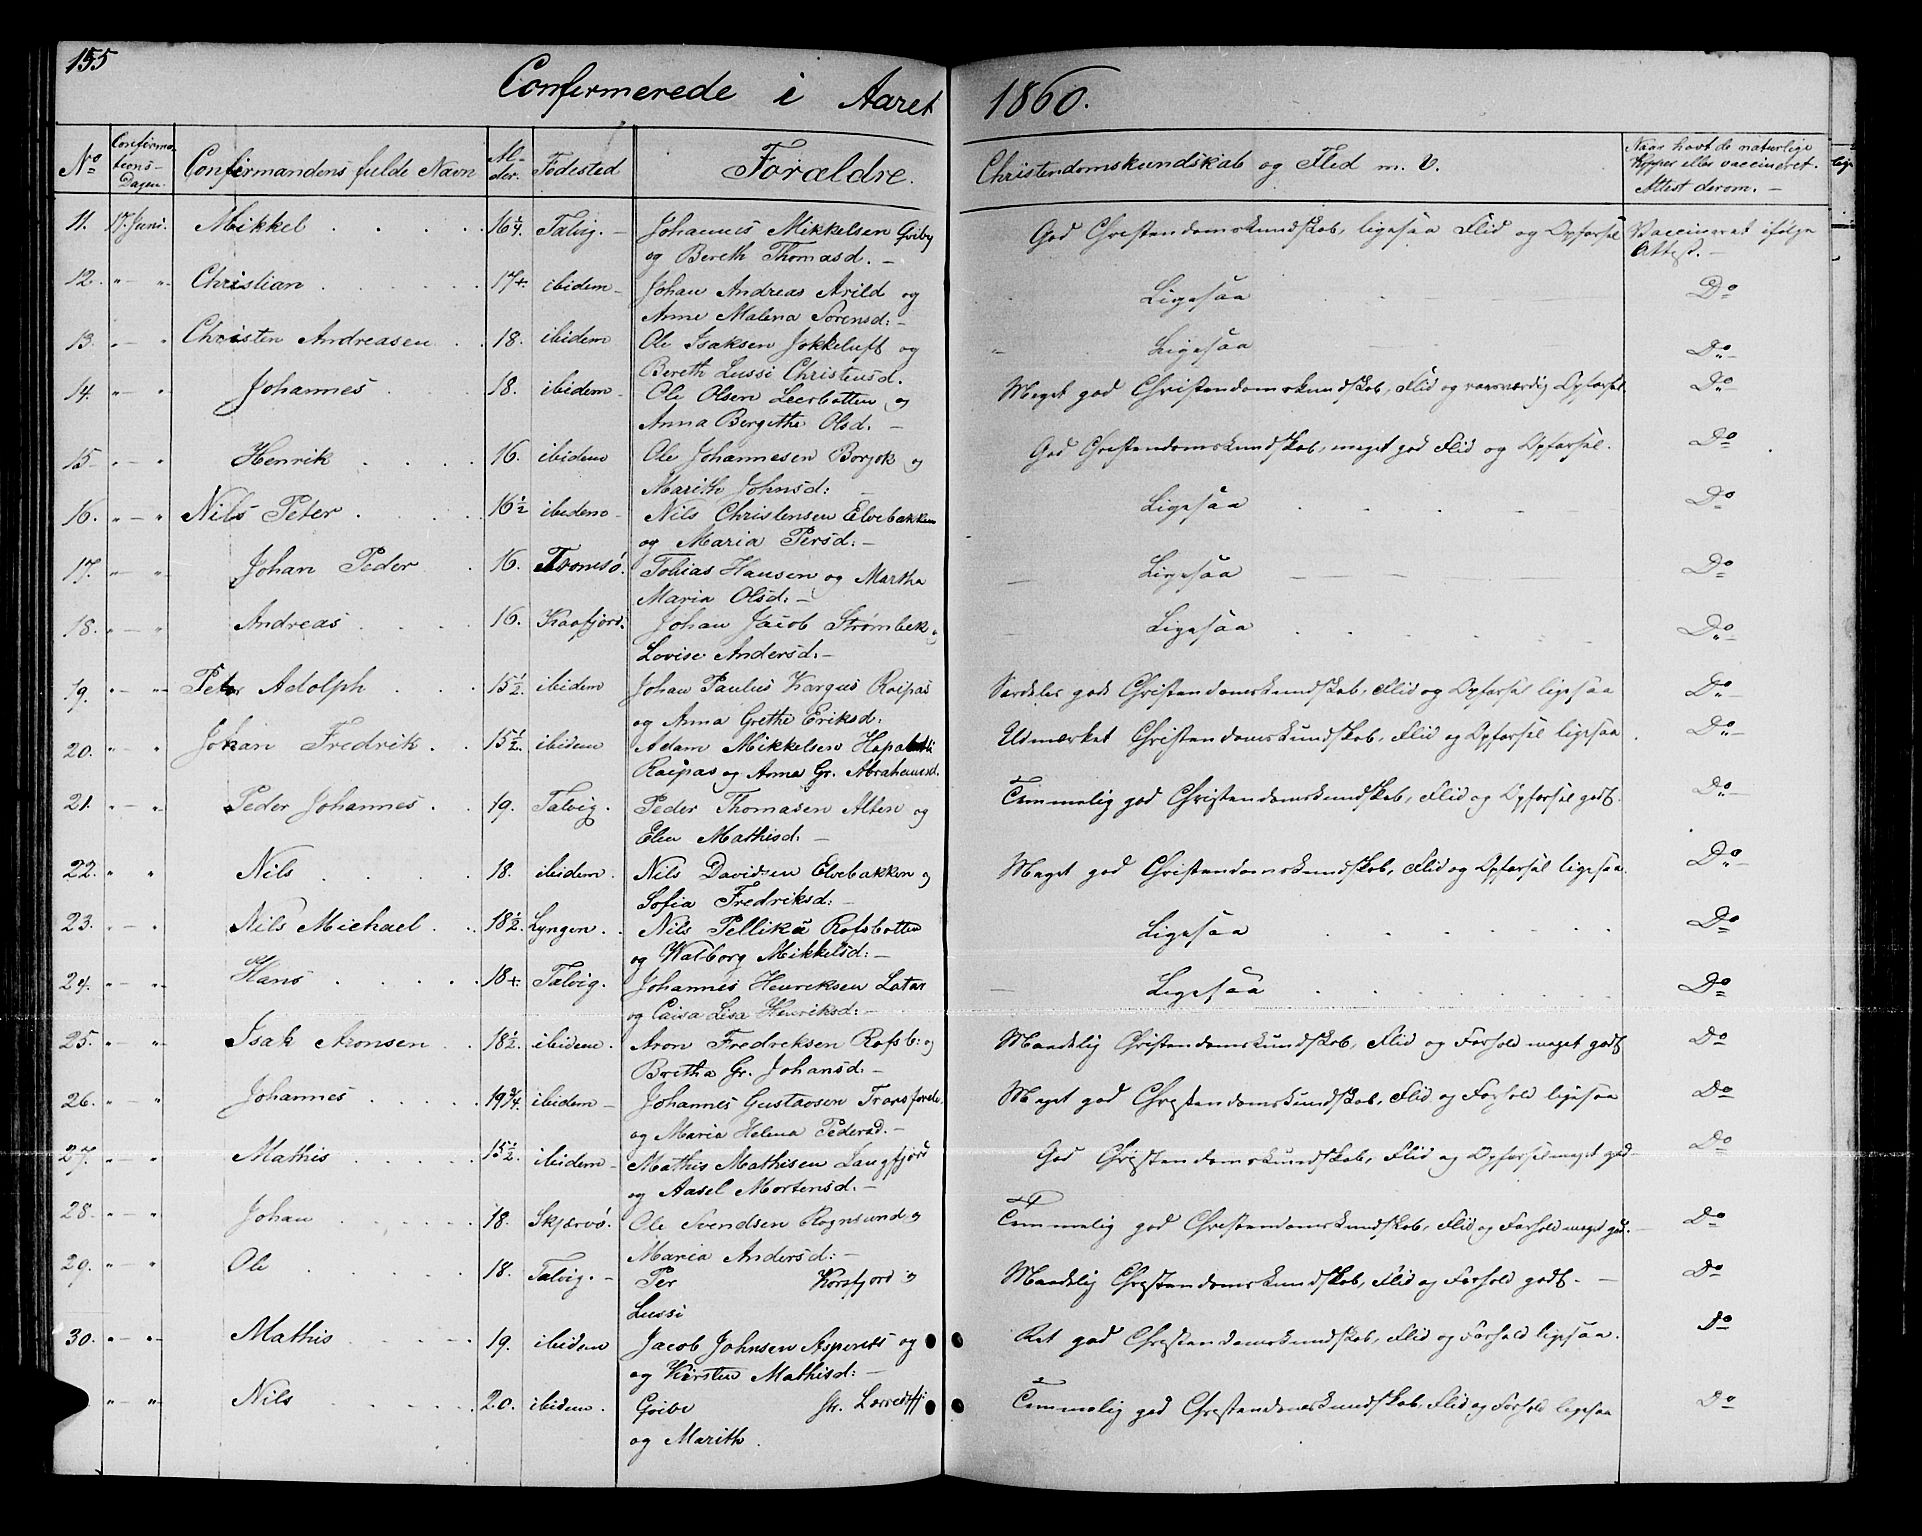 155
Confirmerede i Aaret 1860.
No Confirmations-Dagen Confirmandens fulde Navn Alder. Fødested Forældre. Christendomskundskab og Flid m. V. Naar havt de naturlige Kopper eller vaccineret. Attest derom. —
11. 17. Juni. Mikkel 16¼ Talvig. — Johannes Mikkelsen God Christendomskundskab, ligesaa Flid og Opførsel Vaccineret ifølge
og Bereth Thomasd. — Attest. —
12. " — " Christian 17+. ibidem — Johan Andreas Arild og Ligesaa Do
Anne Malena Sørensd: —
13. " — " Christen Andreasen 18. ibidem Ole Isaksen Jokkeluft og Ligesaa Do
Bereth Lussi Christensd.
14. " — " Johannes 18. ibidem — Ole Olsen Leerbotten og Meget god Christendomskundskab, Flid og roesværdig Opførsel. Do
Anna Bergithe Olsd. —
15 " — " Henrik 16. ibidem Ole Johannesen Borjok og God Christendomskundskab, meget god Flid og Opførsel. Do
Marith Johnsd:
16. " — " Nils Peter 16½ ibidem — Nils Christensen Elvebakken Ligesaa Do
og Maria Persd: —
17. " — " Johan Peder 16. Tromsø. Tobias Hansen og Martha Ligesaa Do
Maria Olsd: —
18. " — " Andreas 16. Kaafjord. Johan Jacob Strømbek og Ligesaa Do
Lovise Andersd: —
19. " — " Peter Adolph 15½. ibidem Johan Paulus Kargus Raipas Særdeles godt Christendomskundskab, Flid og Opførsel ligesaa Do
og Anna Grethe Eriksd:
20. " — " Johan Fredrik 15½. ibidem Adam Mikkelsen Udmærket Christendomskundskab, Flid og Opførsel ligesaa Do
Raipas og Anna Gr. Abrahamsd.
21. " — " Peder Johannes 19. Talvig. Peder Thomasen Alten og Temmelig god Christendomskundskab, Flid og Opførsel godt. Do
Elen Mathisd: —
22. " " Nils 18. ibidem. Nils Davidsen Elvebakken og Meget god Christendomskundskab, Flid og Opførsel ligesaa. Do
Sofia Fredriksd: —
23. " — " Nils Michael 18½ Lyngen. Nils Pellika Rafsbotten Ligesaa Do
og Walborg Mikkelsd: —
24. " — " Hans 18+. Talvig. Johannes Henriksen Latar Ligesaa Do
og Caisa Lisa Henriksd: —
25. " — " Isak Aronsen 18½. ibidem. Aron Fredriksen Rafsb: og Maadelig Christendomskundskab, Flid og Forhold meget godt Do
Bretha Gr. Johansd: —
26. " — " Johannes 19¾. ibidem — Johannes Gustavsen Meget god Christendomskundskab, Flid og Forhold ligesaa Do
og Maria Helena Pedersd. —
27. " — " Mathis 15½. ibidem — Mathis Mathisen Langfjord God Christendomskundskab, Flid og Opførsel meget god Do
og Aasel Mortensd. —
28. " — " Johan 18. Skjærvø. Ole Svendsen Rognsund og Temmelig god Christendomskundskab, Flid og Forhold meget god. Do
Maria Andersd: —
29. " — " Ole 18. Talvig. — Per Korsfjord og Maadelig Christendomskundskab, Flid og Forhold godt. — Do
Lussi
30. " — " Mathis 19. ibidem Jacob Johnsen Aspenæs og Ret god Christendomskundskab, Flid og Forhold ligesaa. Do
og Kirsten Mathisd: —
" — " Nils 20. ibidem. Temmelig god Christendomskundskab, Flid og Forhold ligesaa Do
og Marith.